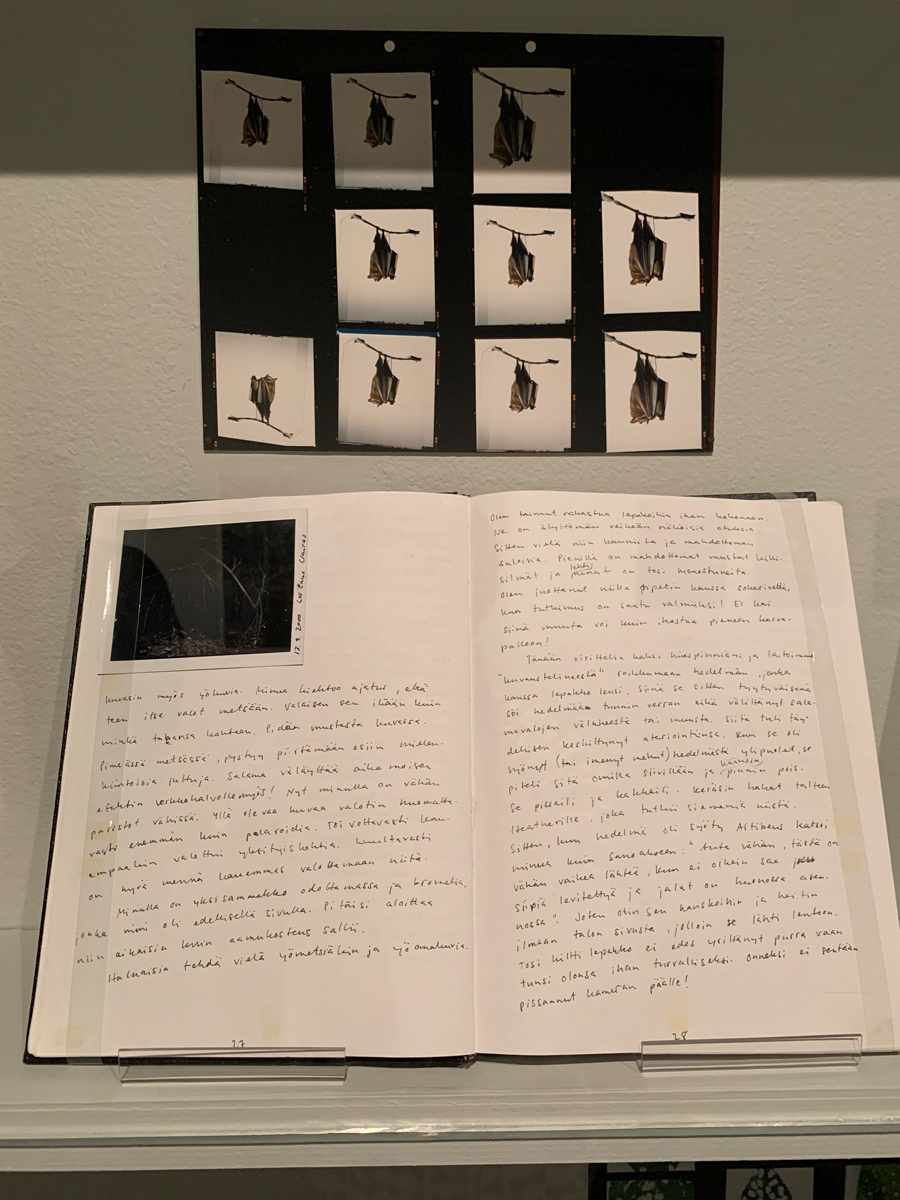 17.9.2000 Las
kuvasin myös yökuvia. Minua kiehtoo ajatus, että
teen itse valot metsään. Valaisen sen ihään kuin
minkä tahansa kohteen. Pidän mustasta kuvassa.
Pimeässä metsässä, pystyy piirtämään esiin mielen-
kiintoisia juttuja. Salama väläyttää aika moisen
efektin verkkokalvollemyös! Nyt minulla on vähän
paristot vähissä. Yllä olevaa kuvaa valotin huomatta-
vasti enemmän kuin polaroidia. Toivottavasti kau-
empaakin valottui yksityiskohtia. Luultavasti
on hyvä mennä kauemmas valottamaan niitä.
Minulla on yksi sammakko odottamassa ja bromelia,
jonka nimi oli edellisellä sivulla. Pitäisi aloittaa
niin aikaisin kuin aamukosteus sallii.
Haluaisin tehdä vielä yömetsäkuvia ja yöomakuvia.
27
Olen tainnut rakastua lepakoihin ihan kokonaan.
Ne on älyttömän veikeän näköisiä otuksia.
Sitten vielä niin kauniita ja mahdottoman
suloisia. Pienillä on mahdottomat mustat kiilto-
silmät ja lehti
päinat on tosi hienostuneita.
Olen juottanut niitä pipetin kanssa sokerivettä,
kun tutkimus on saatu valmiiksi! Ei kai
siinä muuta voi kuin ihastua pieneen karva-
palloon!
Tänään viritteliin kaksi hiuspinniäni ja laitoimme
"kuvaustelineestä" roikkumaan hedelmän, jonka
kanssa lepakko lensi. Siinä se sitten tyytyväisenä
söi hedelmää tunnin verran eikä välittänyt sala-
mavalojen välkkeestä tai minusta. Siitä tuli täy-
dellisen keskittynyt ateriointiinsa. Kun se oli
syönyt (tai imenyt mehut) hedelmästä ylipuolet, se
piteli sitä omilla siivillään ja käänsin
pinnin pois.
Se pissaili ja kakkaili. Keräsin kakat talteen
Heatherille, joka tutkii siemeniä niistä.
Sitten, kun hedelmä oli syöty Artibeus katsoi
minua kuin sanoakseen: "Auta vähän, tästä on
vähän vaikea lähteä, kun ei oikein saa
siipiä levitettyä ja jalat on huonossa asen-
nossa". Joten otin sen hanskoihin ja heitin
ilmaan talon sivusta, jolloin se lähti lentoon.
Tosi kiltti lepakko ei edes yrittänyt purra vaan
tunsi olonsa ihan turvalliseksi. Onneksi ei sentään
pissannut kameran päälle!
28